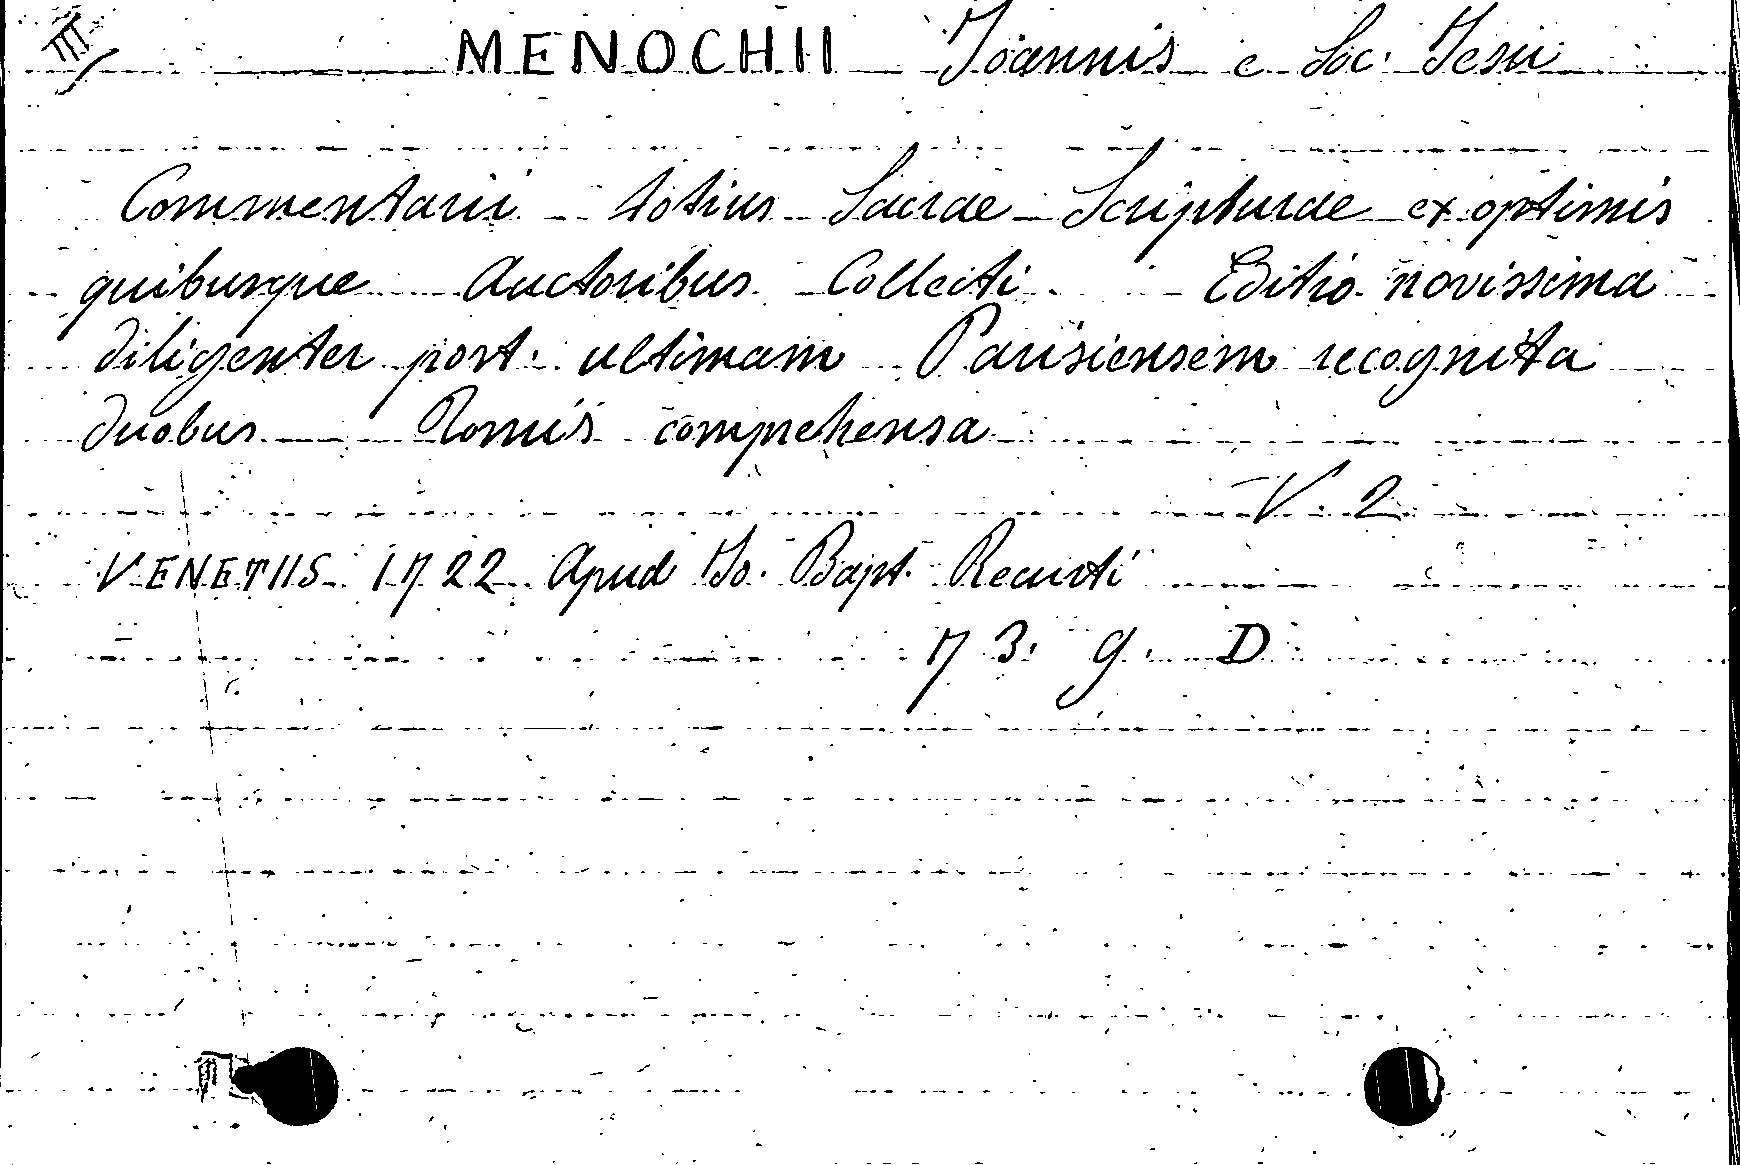 III
MENOCHII Joannis e Soc. Jesu
Commentarii totius Sacrae Scripturae ex optimis
quibusque Auctoribus Collecti. Editio novissima
diligenter post. ultimam Parisiensem recognita
duobus Tomis comprehensa
V. 2
VENETIIS 1722 Apud Jo. Bapt. Recurti
73. g. D